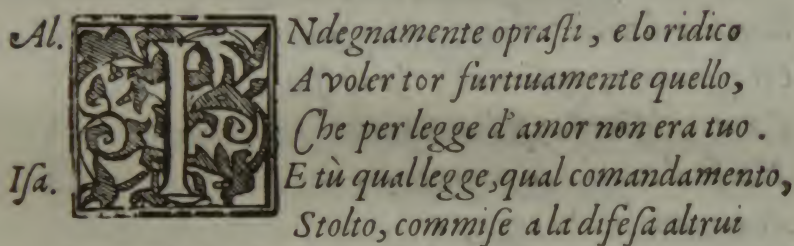 Al. INdegnamente oprasti, e lo ridico
A voler tor furtiuamente quello,
Che per legge d'amor non era tuo.
Isa. E tù qual legge, qual comandamento,
Stolto, commise a la difesa altrui